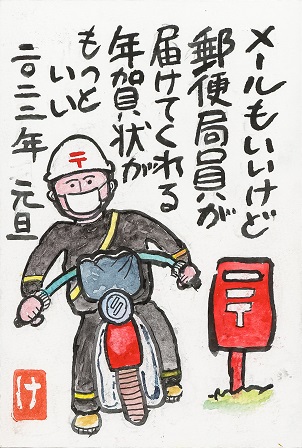 メールもいいけど
郵便局員が
届けてくれる
年賀状が
もっと
いい
二〇二三年 元旦
〒
〒
け